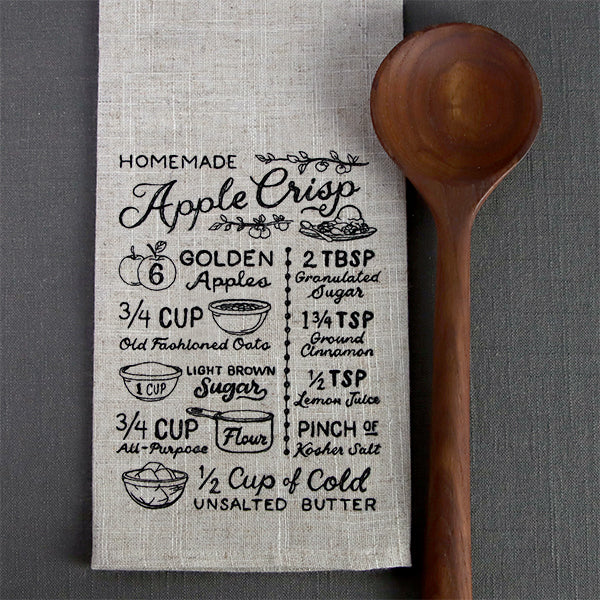 HOMEMADE
Apple Crisp
6 GOLDEN
Apples
3/4 CUP
Old Fashioned Oats
1 CUP
LIGHT BROWN
Sugar
3/4 CUP
All-Purpose
Flour
2 TBSP
Granulated
Sugar
1 3/4 TSP
Ground
Cinnamon
1/2 TSP
Lemon Juice
PINCH OF
Kosher Salt
1/2 Cup of Cold
UNSALTED BUTTER